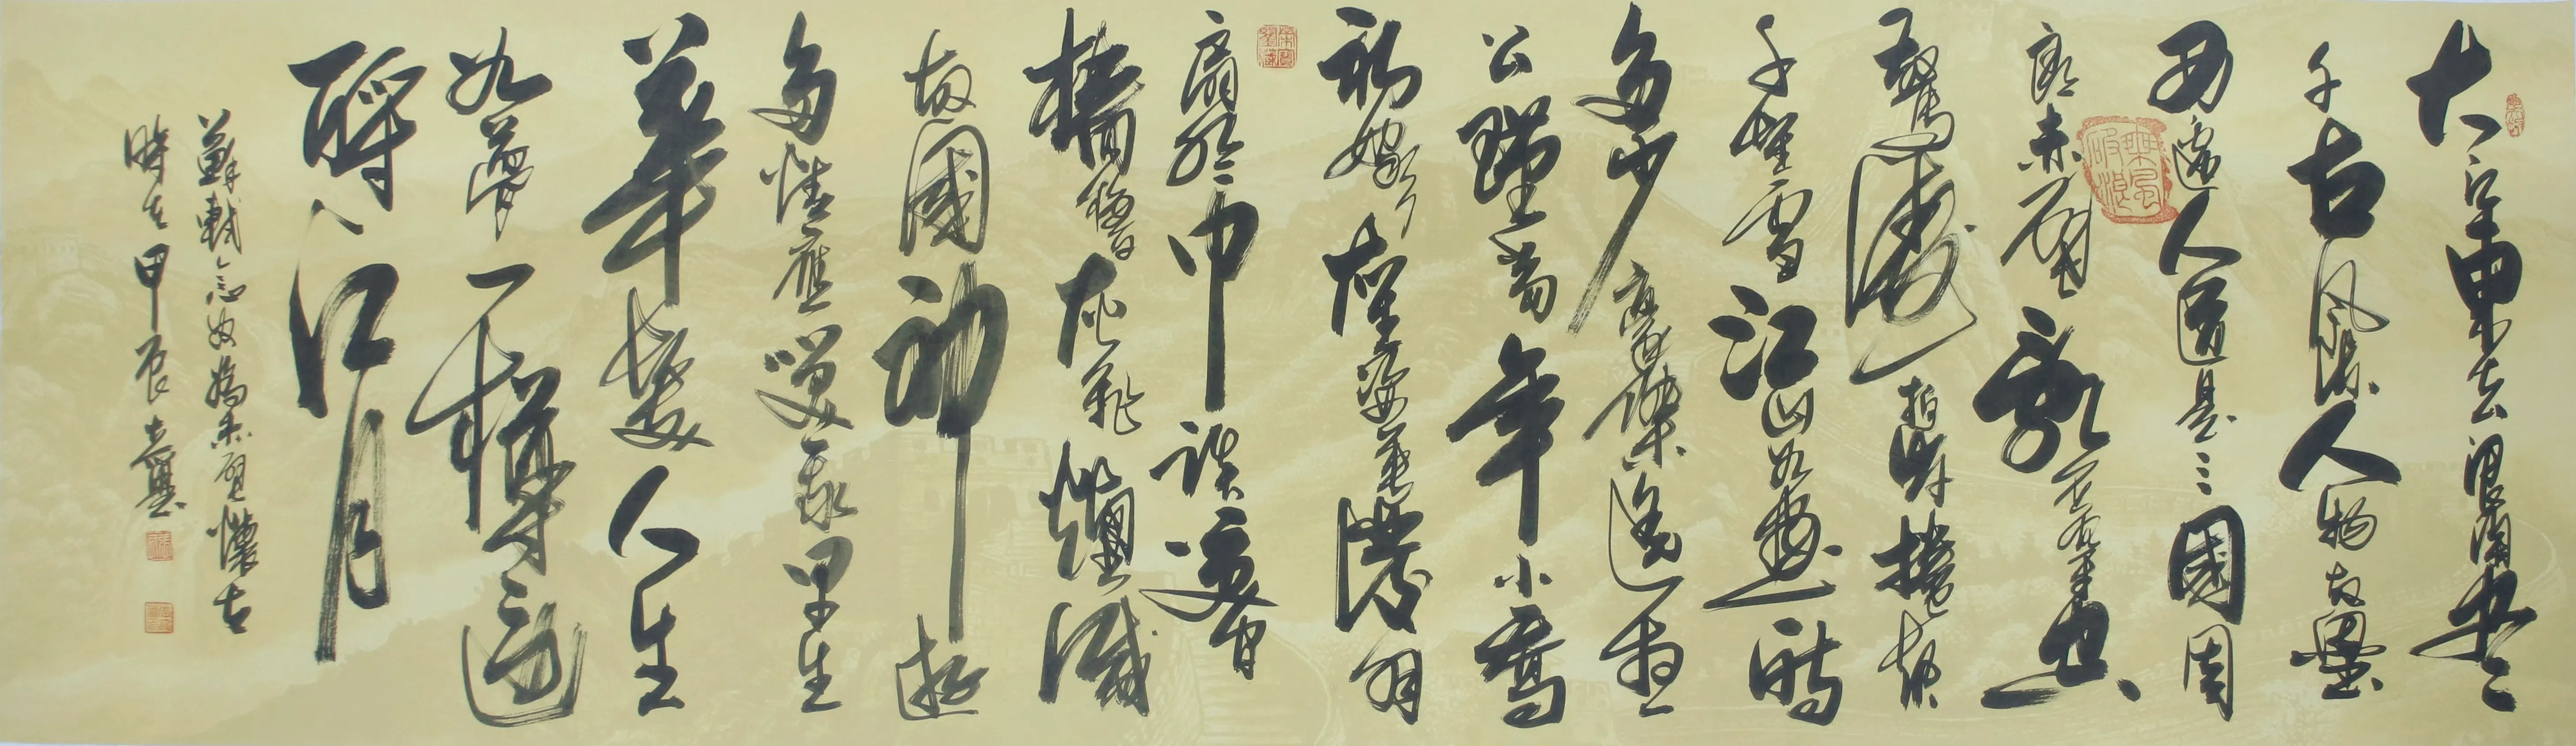 大江東去浪淘盡
千古風流人物故壘
西邊人道是三國周
郎赤壁亂石穿空
驚濤拍岸捲起
千堆雪江山如畫一時
多少豪傑遙想
公瑾當年小喬
初嫁了雄姿英發羽
扇綸巾談笑間
檣櫓灰飛煙滅
故國神遊
多情應笑我早生
華髮人生
如夢一樽還
酹江月
蘇軾念奴嬌赤壁懷古
時在甲辰
乘風破浪